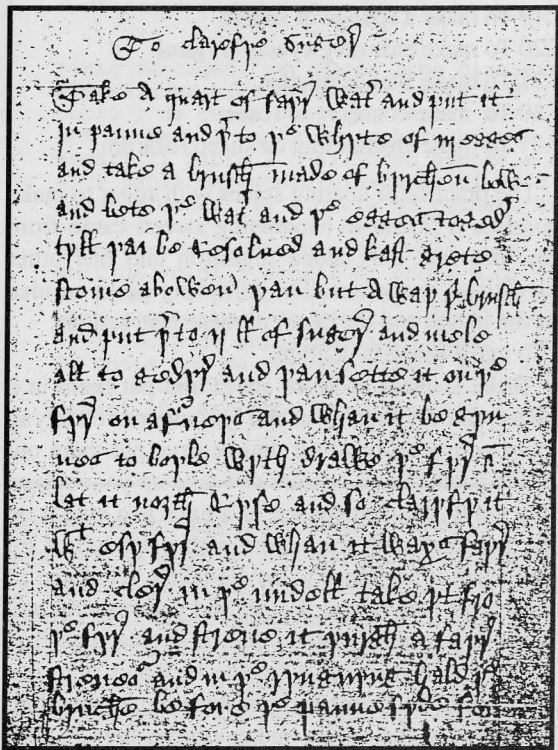 To claryfye suger
Take A quart of fayr Wat' and put it
in panne and þ'to þe Whyte of iij egges
and take a brusch made of byrchen bow
and bete þe Wat' and þe egges toged'
tyll þai be resolued and kast grete
stome abowen þan put A way þe brusch
and put þ'to ij ll of suger and mele
all to gedyr and þan sette it on þe
fyr on a f'neys and Whan it begyn
nes to boyle Wyth drawe þe fyr
lat it north ryse and so claryfy it
Wt esy fyr and Whan it Waxes fayr
and cler in þe myddell take yt fro
þe fyr and strene it þurgh a fayr
strenes and in þe rynnyng hald þe
brusche before þe panne